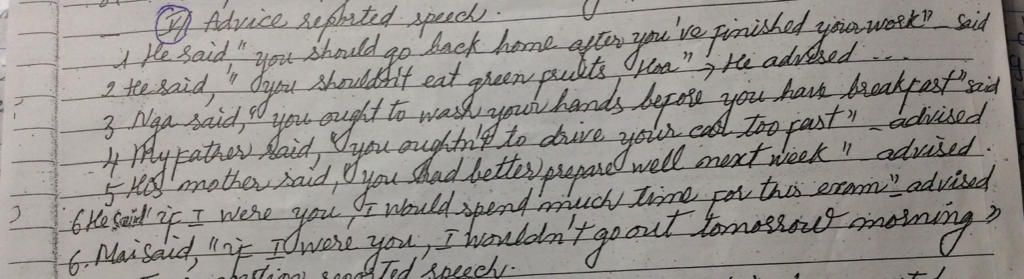 V) Advice reported speech.
1 He said, "you should go back home after you've finished your work" said
2 He said, "you shouldn't eat green fruits, Hoa" → He advised ...
3 Nga said, "you ought to wash your hands before you have breakfast" said
4 My father said, "you oughtn't to drive your car too fast" - advised
5. His mother said, "you had better prepare well next week" advised.
6. He said "if I were you, I would spend much time for this exam" advised
6. Mai said, "if I were you, I wouldn't go out tomorrow morning"
reported speech.